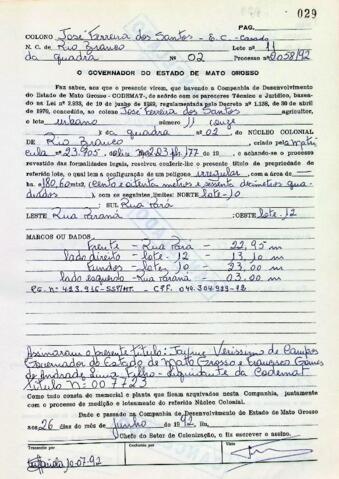 PAG. 029
COLONO José Ferreira dos Santos - E.C. - Casado
N. C. de Rio Branco Lote nº 11
da quadra Nº 02 Processo nº 2058/92
O GOVERNADOR DO ESTADO DE MATO GROSSO
Faz saber, aos que o presente virem, que havendo a Companhia de Desenvolvimento
do Estado de Mato Grosso - CODEMAT, de acordo com os pareceres Técnico e Jurídico, basea-
do na Lei nº de 19 de junho de regulamentada pelo Decreto nº de 30 de abril
de 1979, concedido, ao colono José Ferreira dos Santos agricultor,
o lote urbano número 11 (onze
) da quadra nº 02 do NÚCLEO COLONIAL
DE Rio Branco, criado pela matrí
cula nº 23.905, 203 fls/177 de 19 e achando-se o processo
revestido das formalidades legais, resolveu conferir-lhe o presente título de propriedade do
referido lote, o qual tem a configuração de um polígono irregular, com a área de
ha 180,60 m2, (Cento e oitenta metros e sessenta decímetros qua-
drados) e com os seguintes limites: NORTE lote-10
; SUL Rua Pará
LESTE Rua Paraná ; OESTE lote-12
MARCOS OU DADOS
Frente - Rua Pará - 22,95 m
lado direito - lote - 12 - 13,10 m
Fundos - lote, 10 - 23,00 m
lado esquerdo - Rua Paraná - 03,00 m
RG. nº SSP/MT. - CPF.
Assinaram o presente título: Jayme Verissimo de Campos
Governador do Estado de Mato Grosso e Francisco Gomes
de Andrade Lima Filho - Liquidante da Codemat
título Nº 007723
Como tudo consta do memorial e planta que ficam arquivados nesta Companhia, juntamente
com o processo de medição e loteamento do referido Núcleo Colonial.
Dado e passado na Companhia de Desenvolvimento do Estado de Mato Grosso
aos 26 dias do mês de Junho de 1992. Eu,
Chefe do Setor de Colonização, o fiz escrever e assino.
Transcrito por Conferido por Visto
10-07-92